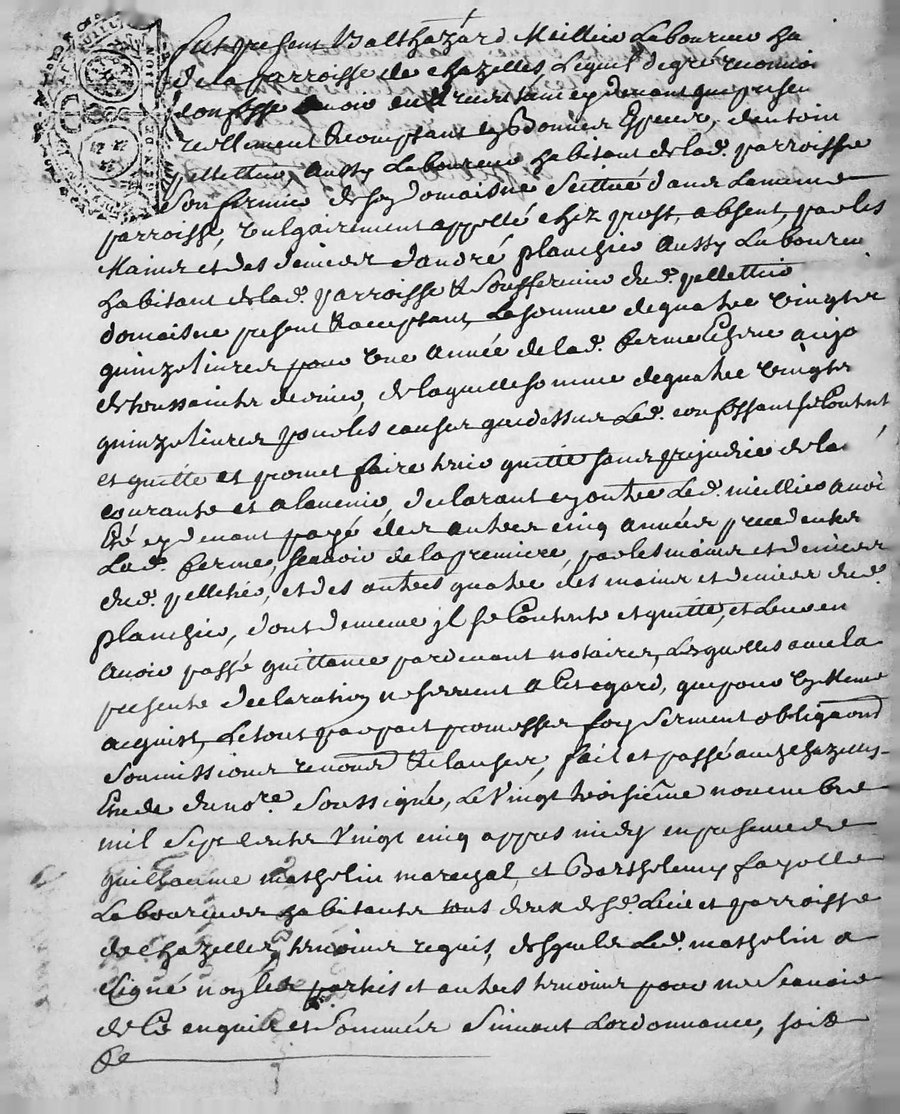 Fut present Balthazard Meillier Laboureur ha
de la parroisse de chazelles, Lequel de gré reconnoi
confesse avoir eu & receu cy devant que presen
reellement & comptant en Bonnes Especes, d'antoin
pellettier Aussy Laboureur habitant de lad. parroisse
Son fermier de son domaisne Scittué dans La meme
parroisse, vulgairement appellé chez prost, absent, par les
Mains et des deniers d'andré planchier Aussy Laboureur
habitant de lad. parroisse & Soufermier dud. pellettier
domaisne present & acceptant, La somme de quatre vingts
quinze livres pour Une Année de lad. ferme Echeue au jo
de toussaints dernier, de laquelle somme de quatre vingts
quinze livres pour les causes que dessus Led. confessant se Contente
et quitte et promet faire tenir quitte sans prejudice de la
courante et a l'avenir, declarant en outre Led. meillier avoir
Eté cy devant payé des autres cinq années precedentes
Lad. ferme, scavoir de la premiere, par les mains et deniers
dud. pelletier, et des autres quatre des mains et deniers dud.
planchier, dont de meme il se Contente et quitte, et Leur en
avoir passé quittance pardevant notaires, Lesquelles avec la
presente declaration ne serviront a Cet egard, que pour Un Meme
acquist, Le tout par part promesses foy Serment obligaons
Soumissions renons & clauses, fait et passé audt chazelles
Etude du nore Soussigné, Le Vingt troisiême novembre
mil Sept Cents Vingt cinq appres midy en presence de
guillaume mathelin marechal, et Barthelemy fayolle
Laboureur habitants tous deux dud. Lieu et parroisse
de chazelles temoins requis, desquels Led. mathelin a
signé non les parties et autres temoins pour ne Scavoir
de Ce enquis et sommés Suivant L'ordonnance, soit
&c